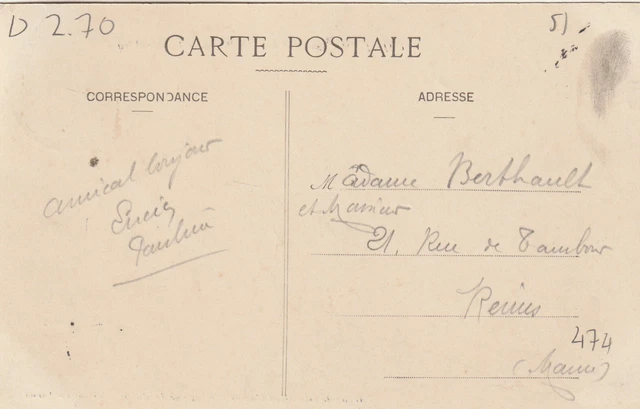 D 2.70
5)
CARTE POSTALE
CORRESPONDANCE
ADRESSE
amical bonjour
Madame Berthault
et Monsieur
21, Rue de Tambour
Reims
474
(Marne)